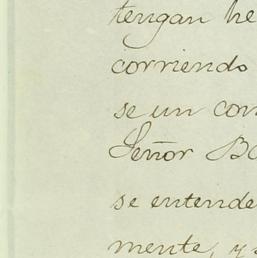 tengan he
corriendo
se un con
Señor Bo
se entende
mente, y